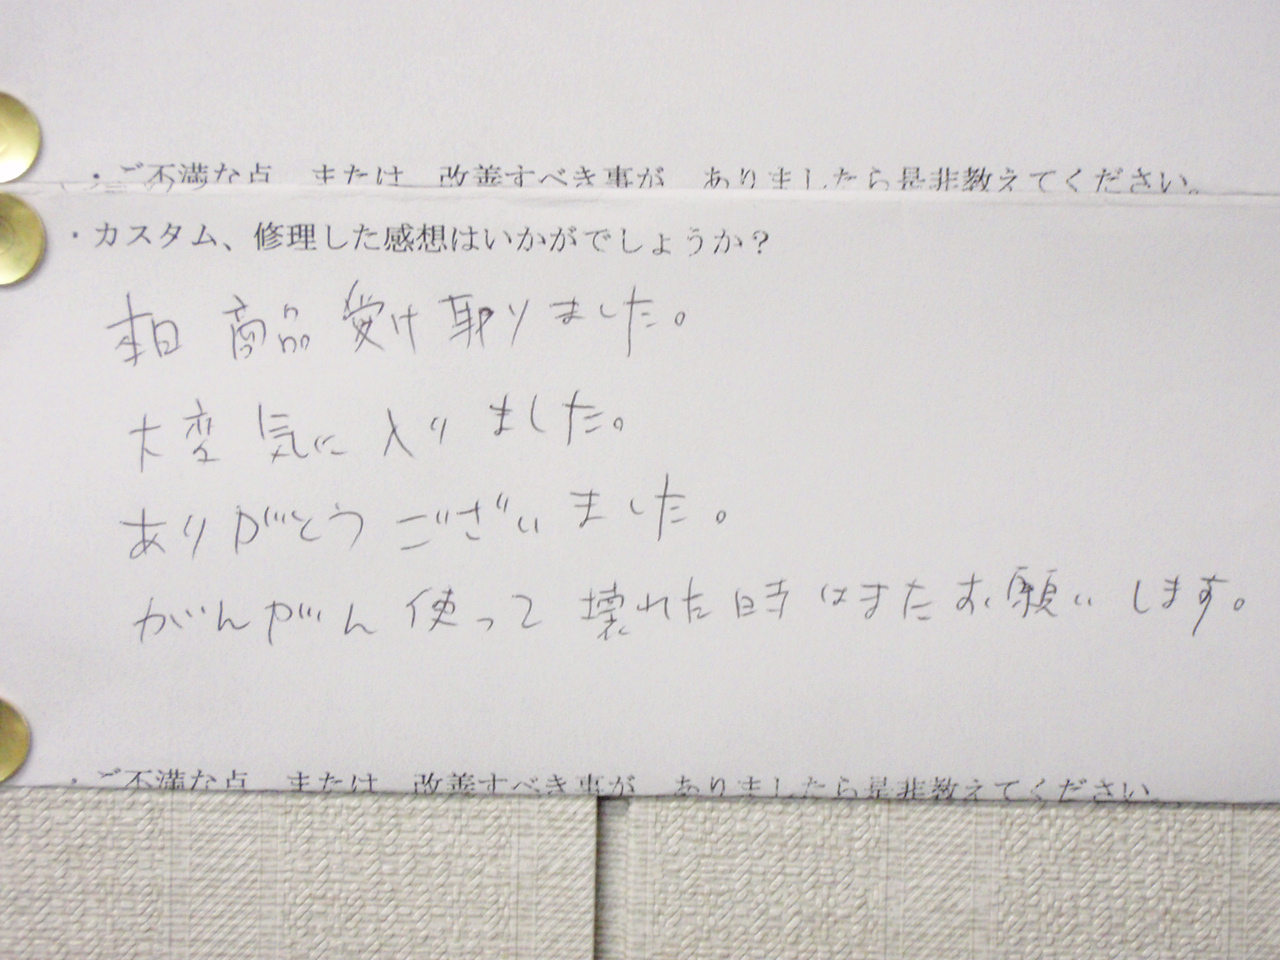 ・ご不満な点、または、改善すべき事が、ありましたら是非教えてください。
・カスタム、修理した感想はいかがでしょうか？
本日 商品 受け取りました。
大変 気に入りました。
ありがとうございました。
がんがん使って壊れた時はまたお願いします。
・ご不満な点、または、改善すべき事が、ありましたら是非教えてください。